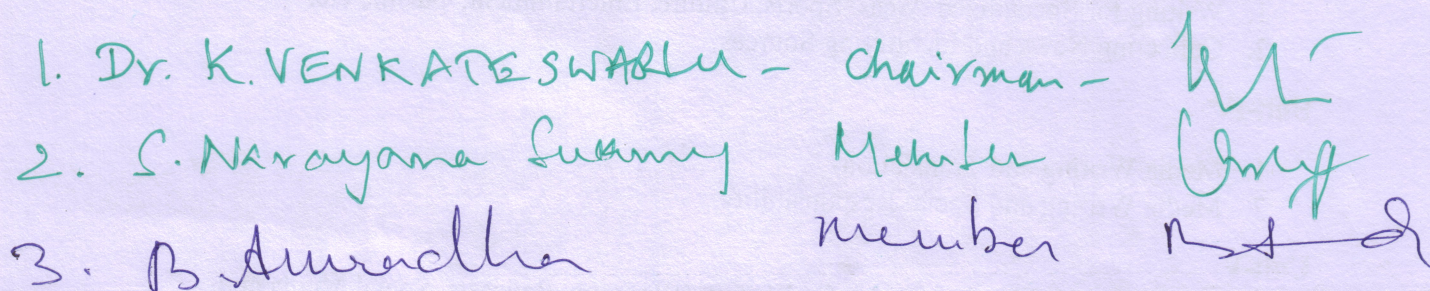 1. Dr. K. VENKATESWARLU - Chairman -
2. S. Narayana Swamy Member
3. B. Anuradha member